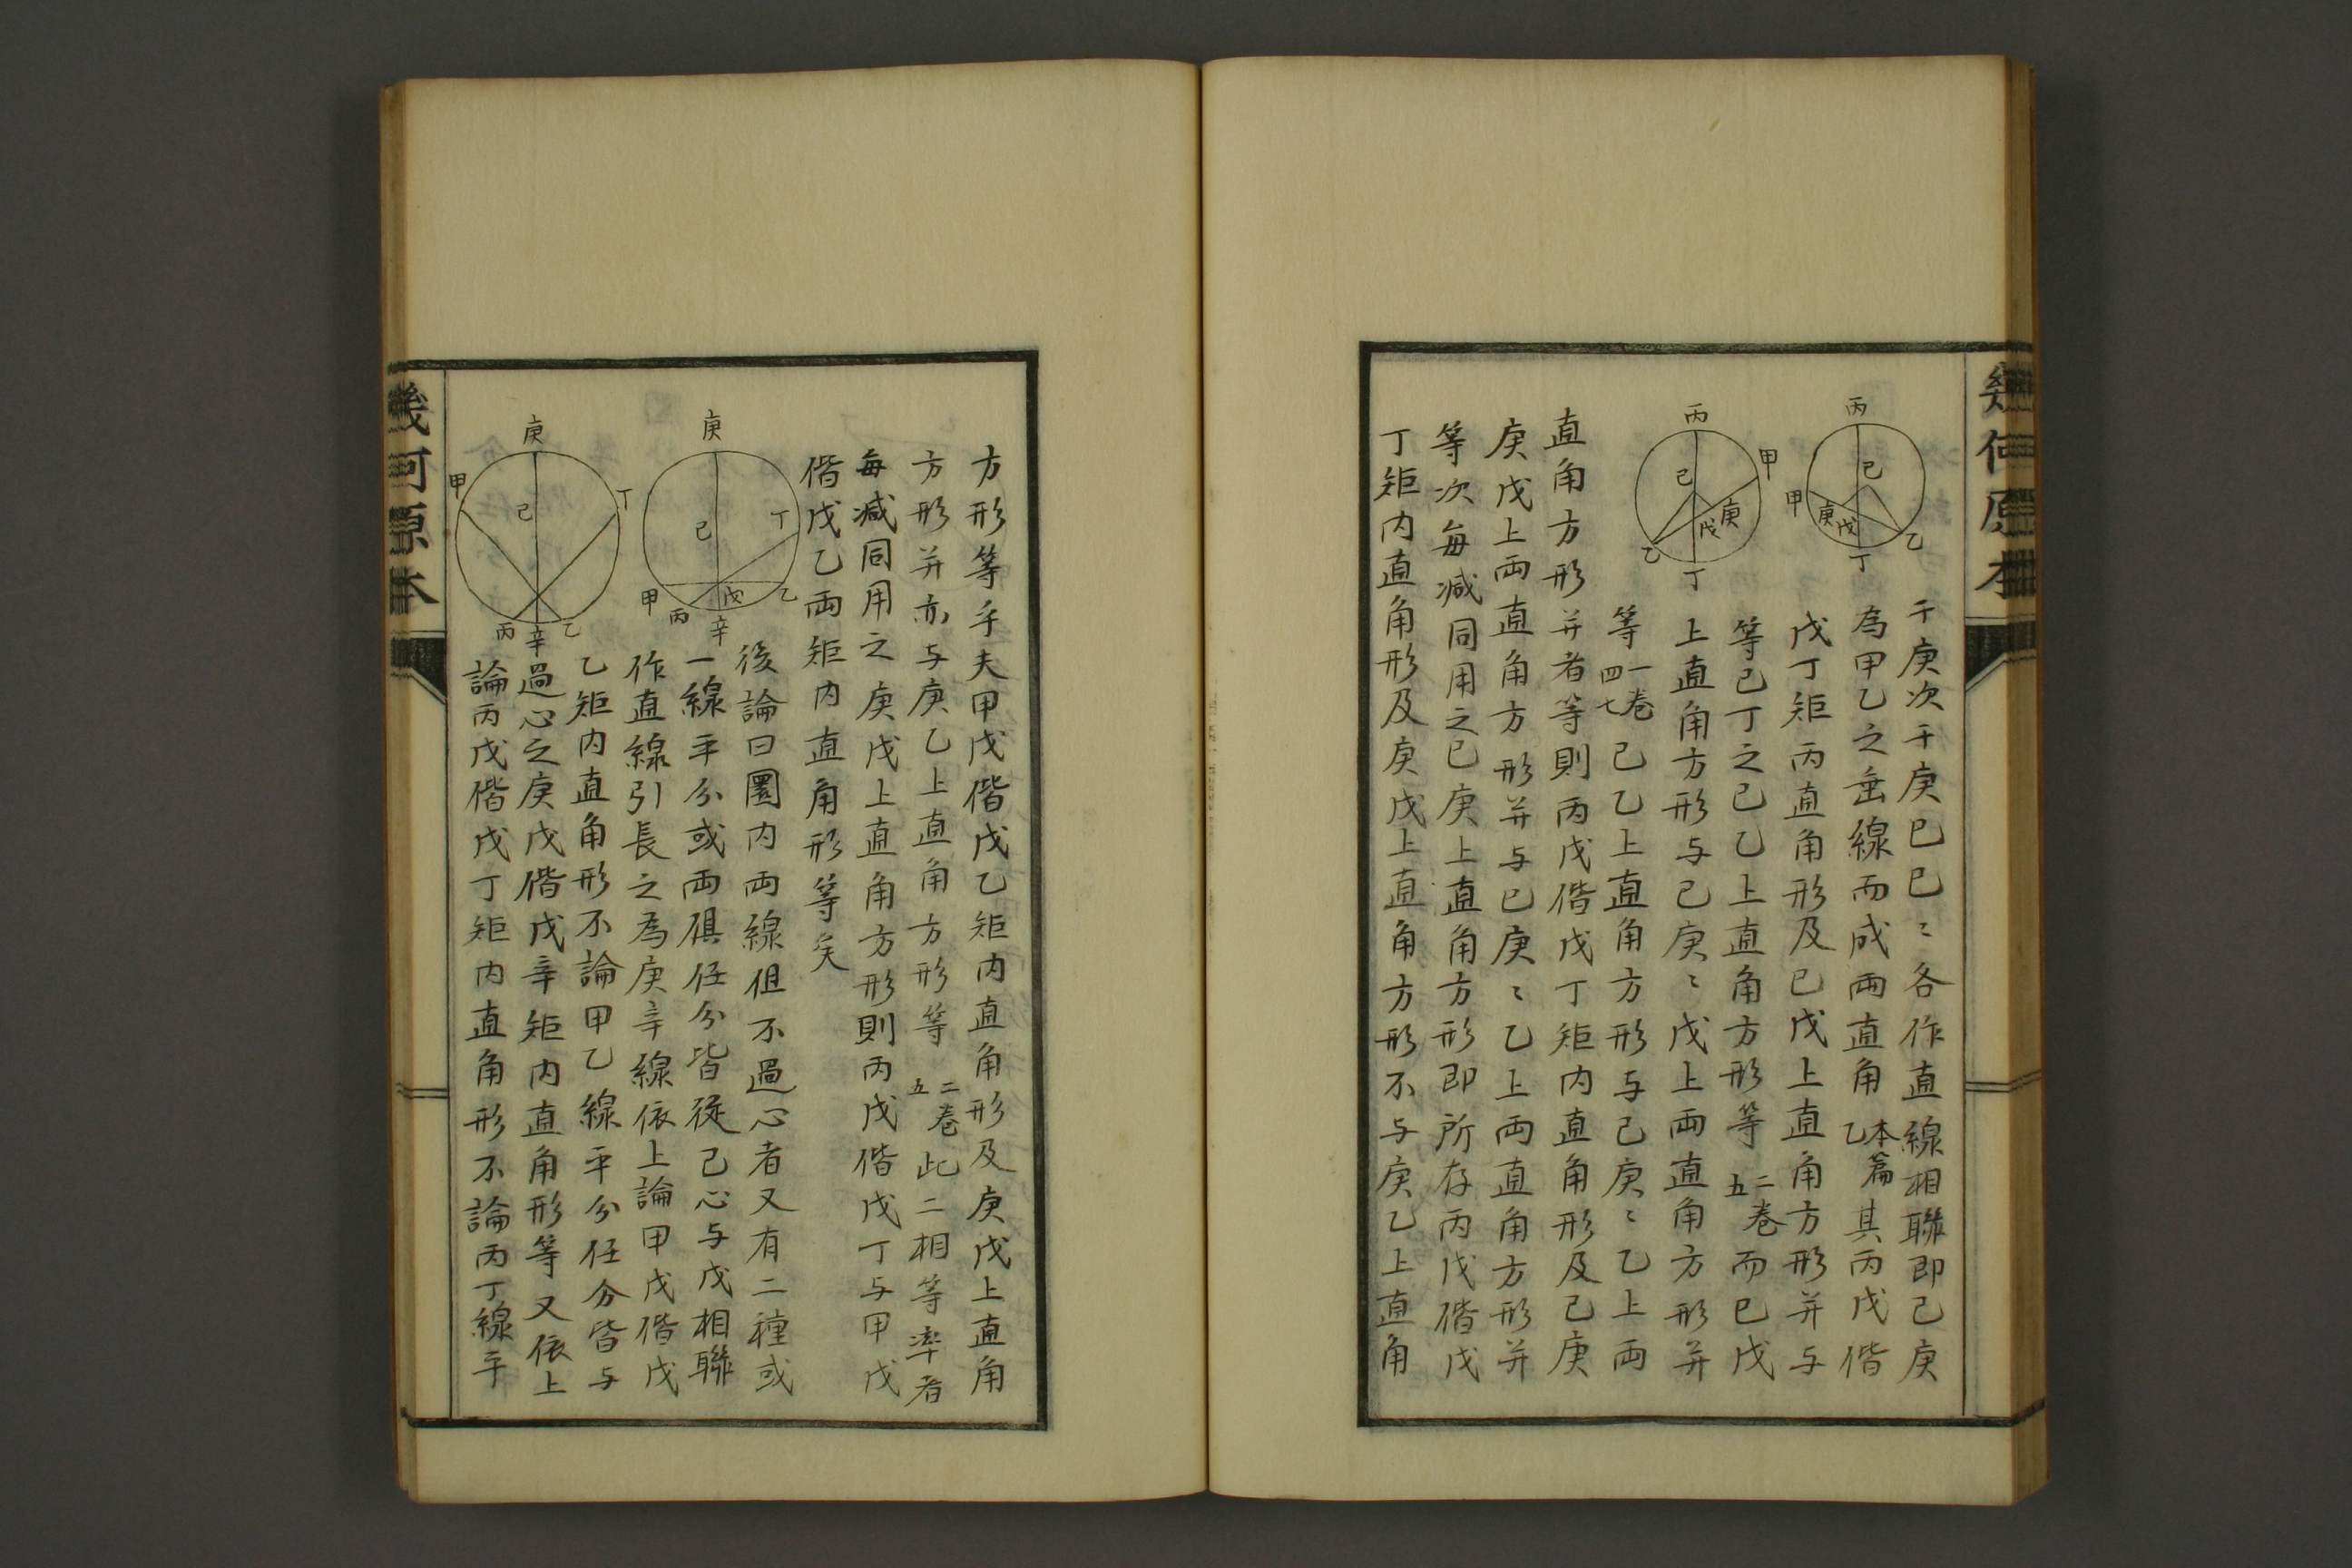 幾何原本
丙
己
甲
庚
戊
乙
丁
丙
甲
己
庚
戊
乙
丁
于庚次于庚巳巳〻各作直線相聯即己庚
為甲乙之垂線而成兩直角本篇乙其丙戊偕
戊丁矩丙直角形及巳戊上直角方形并与
等己丁之己乙上直角方形等二卷五而巳戊
上直角方形与己庚〻戊上兩直角方形并
等一卷四七己乙上直角方形与己庚〻乙上兩
直角方形并者等則丙戊偕戊丁矩内直角形及己庚
庚戊上兩直角方形并与巳庚〻乙上兩直角方形并
等次每减同用之巳庚上直角方形即所存丙戊偕戊
丁矩内直角形及庚戊上直角方形不与庚乙上直角
方形等乎夫甲戊偕戊乙矩内直角形及庚戊上直角
方形并亦与庚乙上直角方形等二卷五此二相等率者
每减同用之庚戊上直角方形則丙戊偕戊丁与甲戊
偕戊乙兩矩内直角形等矣
庚
丁
己
甲
丙
戊
乙
辛
後論曰圜内兩線但不過心者又有二種或
一線平分或兩俱任分皆從己心与戊相聯
作直線引長之為庚辛線依上論甲戊偕戊
庚
甲
丁
己
丙
辛
乙
乙矩内直角形不論甲乙線平分任分皆与
過心之庚戊偕戊辛矩内直角形等又依上
論丙戊偕戊丁矩内直角形不論丙丁線平
幾何原本